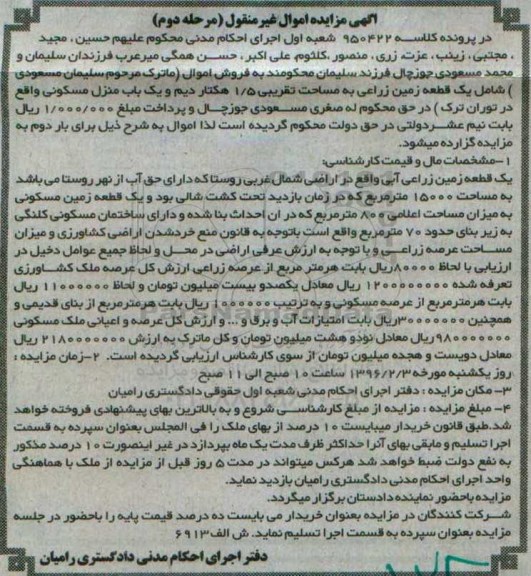 آگهی مزایده اموال غیر منقول (مرحله دوم)
در پرونده کلاسه ۹۵۰۴۲۲ شعبه اول اجرای احکام مدنی محکوم علیهم حسین ، مجید
، مجتبی ، زینب ، عزت، زری ، منصور ،کلثوم، علی اکبر ، حسن همگی میرعرب فرزندان سلیمان و
محمد مسعودی جوزچال فرزند سلیمان محکومند به فروش اموال (ماترک مرحوم سلیمان مسعودی
) شامل یک قطعه زمین زراعی به مساحت تقریبی ۱/۵ هکتار دیم و یک باب منزل مسکونی واقع
در توران ترک ) در حق محکوم له صغری مسعودی جوزچال و پرداخت مبلغ ۱/۰۰۰/۰۰۰ ریال
بابت نیم عشر دولتی در حق دولت محکوم گردیده است لذا اموال به شرح ذیل برای بار دوم به
مزایده گزارده میشود.
۱-مشخصات مال و قیمت کارشناسی:
یک قطعه زمین زراعی آبی واقع در اراضی شمال غربی روستا که دارای حق آب از نهر روستا می باشد
به مساحت ۱۵۰۰۰ مترمربع که در زمان بازدید تحت کشت شالی بود و یک قطعه زمین مسکونی
به میزان مساحت اعلامی ۸۰۰ مترمربع که در ان احداث بنا شده و دارای ساختمان مسکونی کلنگی
به زیر بنای حدود ۷۰ مترمربع واقع است باتوجه به قانون منع خردشدن اراضی کشاورزی و میزان
مساحت عرصه زراعی و با توجه به ارزش عرفی اراضی در محل و لحاظ جمیع عوامل دخیل در
ارزیابی با لحاظ ۸۰۰۰۰ ریال بابت هر متر مربع از عرصه زراعی ارزش کل عرصه ملک کشاورزی
تعرفه شده ۱۲۰۰۰۰۰۰۰۰ ریال معادل یکصدو بیست میلیون تومان و لحاظ ۱۱۰۰۰۰۰ ریال
بابت هرمترمربع از عرصه مسکونی و به ترتیب ریال بابت هرمترمربع از بنای قدیمی و
همچنین ریال بابت امتیازات آب و برق و ... و ارزش کل عرصه و اعیانی ملک مسکونی
۹۸۰۰۰۰۰۰۰ ریال معادل نودو هشت میلیون تومان و کل ماترک به ارزش ۲۱۸۰۰۰۰۰۰۰ ریال
معادل دویست و هجده میلیون تومان از سوی کارشناس ارزیابی گردیده است. ۲-زمان مزایده :
روز یکشنبه مورخه ۱۳۹۶/۲/۳ ساعت ۱۰ صبح الی ۱۱ صبح
۳- مکان مزایده : دفتر اجرای احکام مدنی شعبه اول حقوقی دادگستری رامیان
۴- مبلغ مزایده : مزایده از مبلغ کارشناسی شروع و به بالاترین بهای پیشنهادی فروخته خواهد
شد.طبق قانون خریدار میبایست ۱۰ درصد از بهای ملک را فی المجلس بعنوان سپرده به قسمت
اجرا تسلیم و مابقی بهای آنرا حداکثر ظرف مدت یک ماه بپردازد در غیر اینصورت ۱۰ درصد مذکور
به نفع دولت ضبط خواهد شد هرکس میتواند در مدت ۵ روز قبل از مزایده از ملک با هماهنگی
واحد اجرای احکام مدنی دادگستری رامیان بازدید نماید.
مزایده باحضور نماینده دادستان برگزار میگردد.
شرکت کنندگان در مزایده بعنوان خریدار می بایست ده درصد قیمت پایه را باحضور در جلسه
مزایده بعنوان سپرده به قسمت اجرا تسلیم نماید. ش الف ۶۹۱۳
دفتر اجرای احکام مدنی دادگستری رامیان